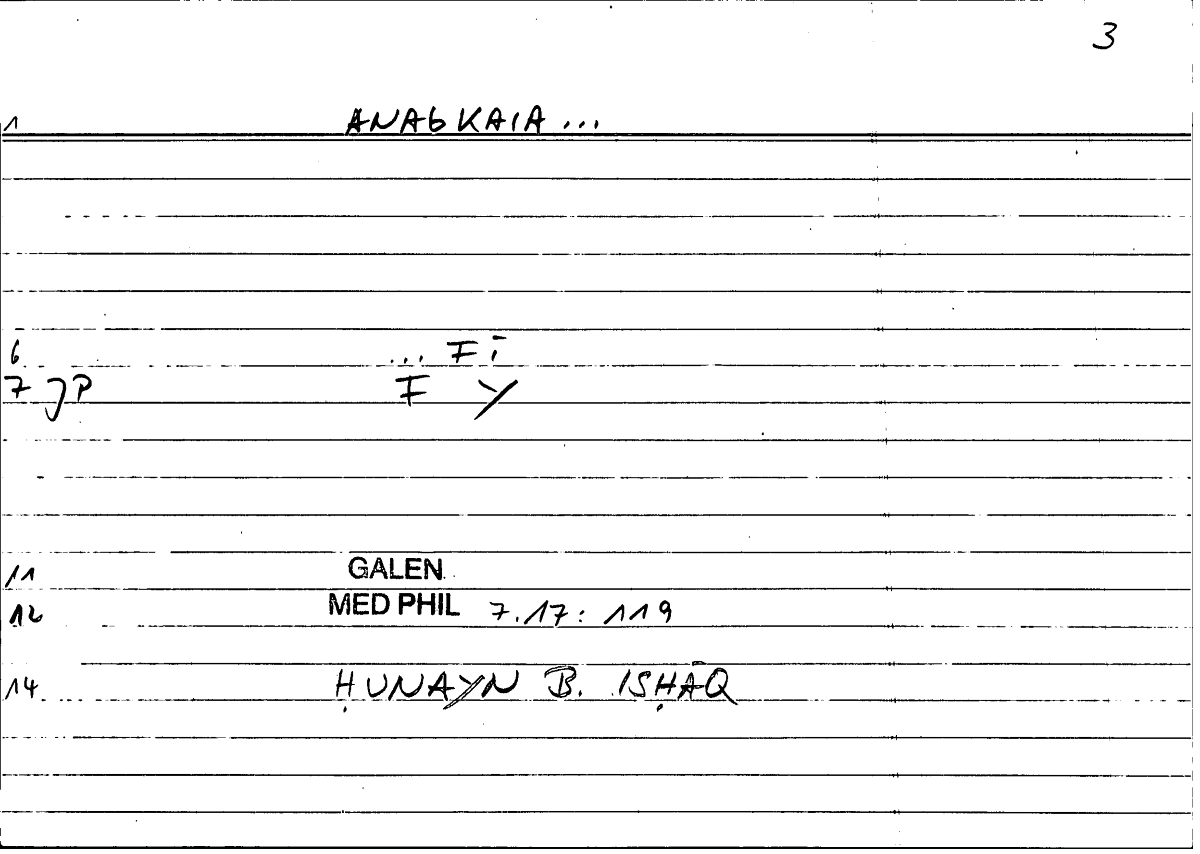 3
1 ANAGKAIA ...
6 ... Fī
7 JP F Y
11 GALEN
12 MED PHIL 7.17: 119
14 ḤUNAYN B. ISḤĀQ